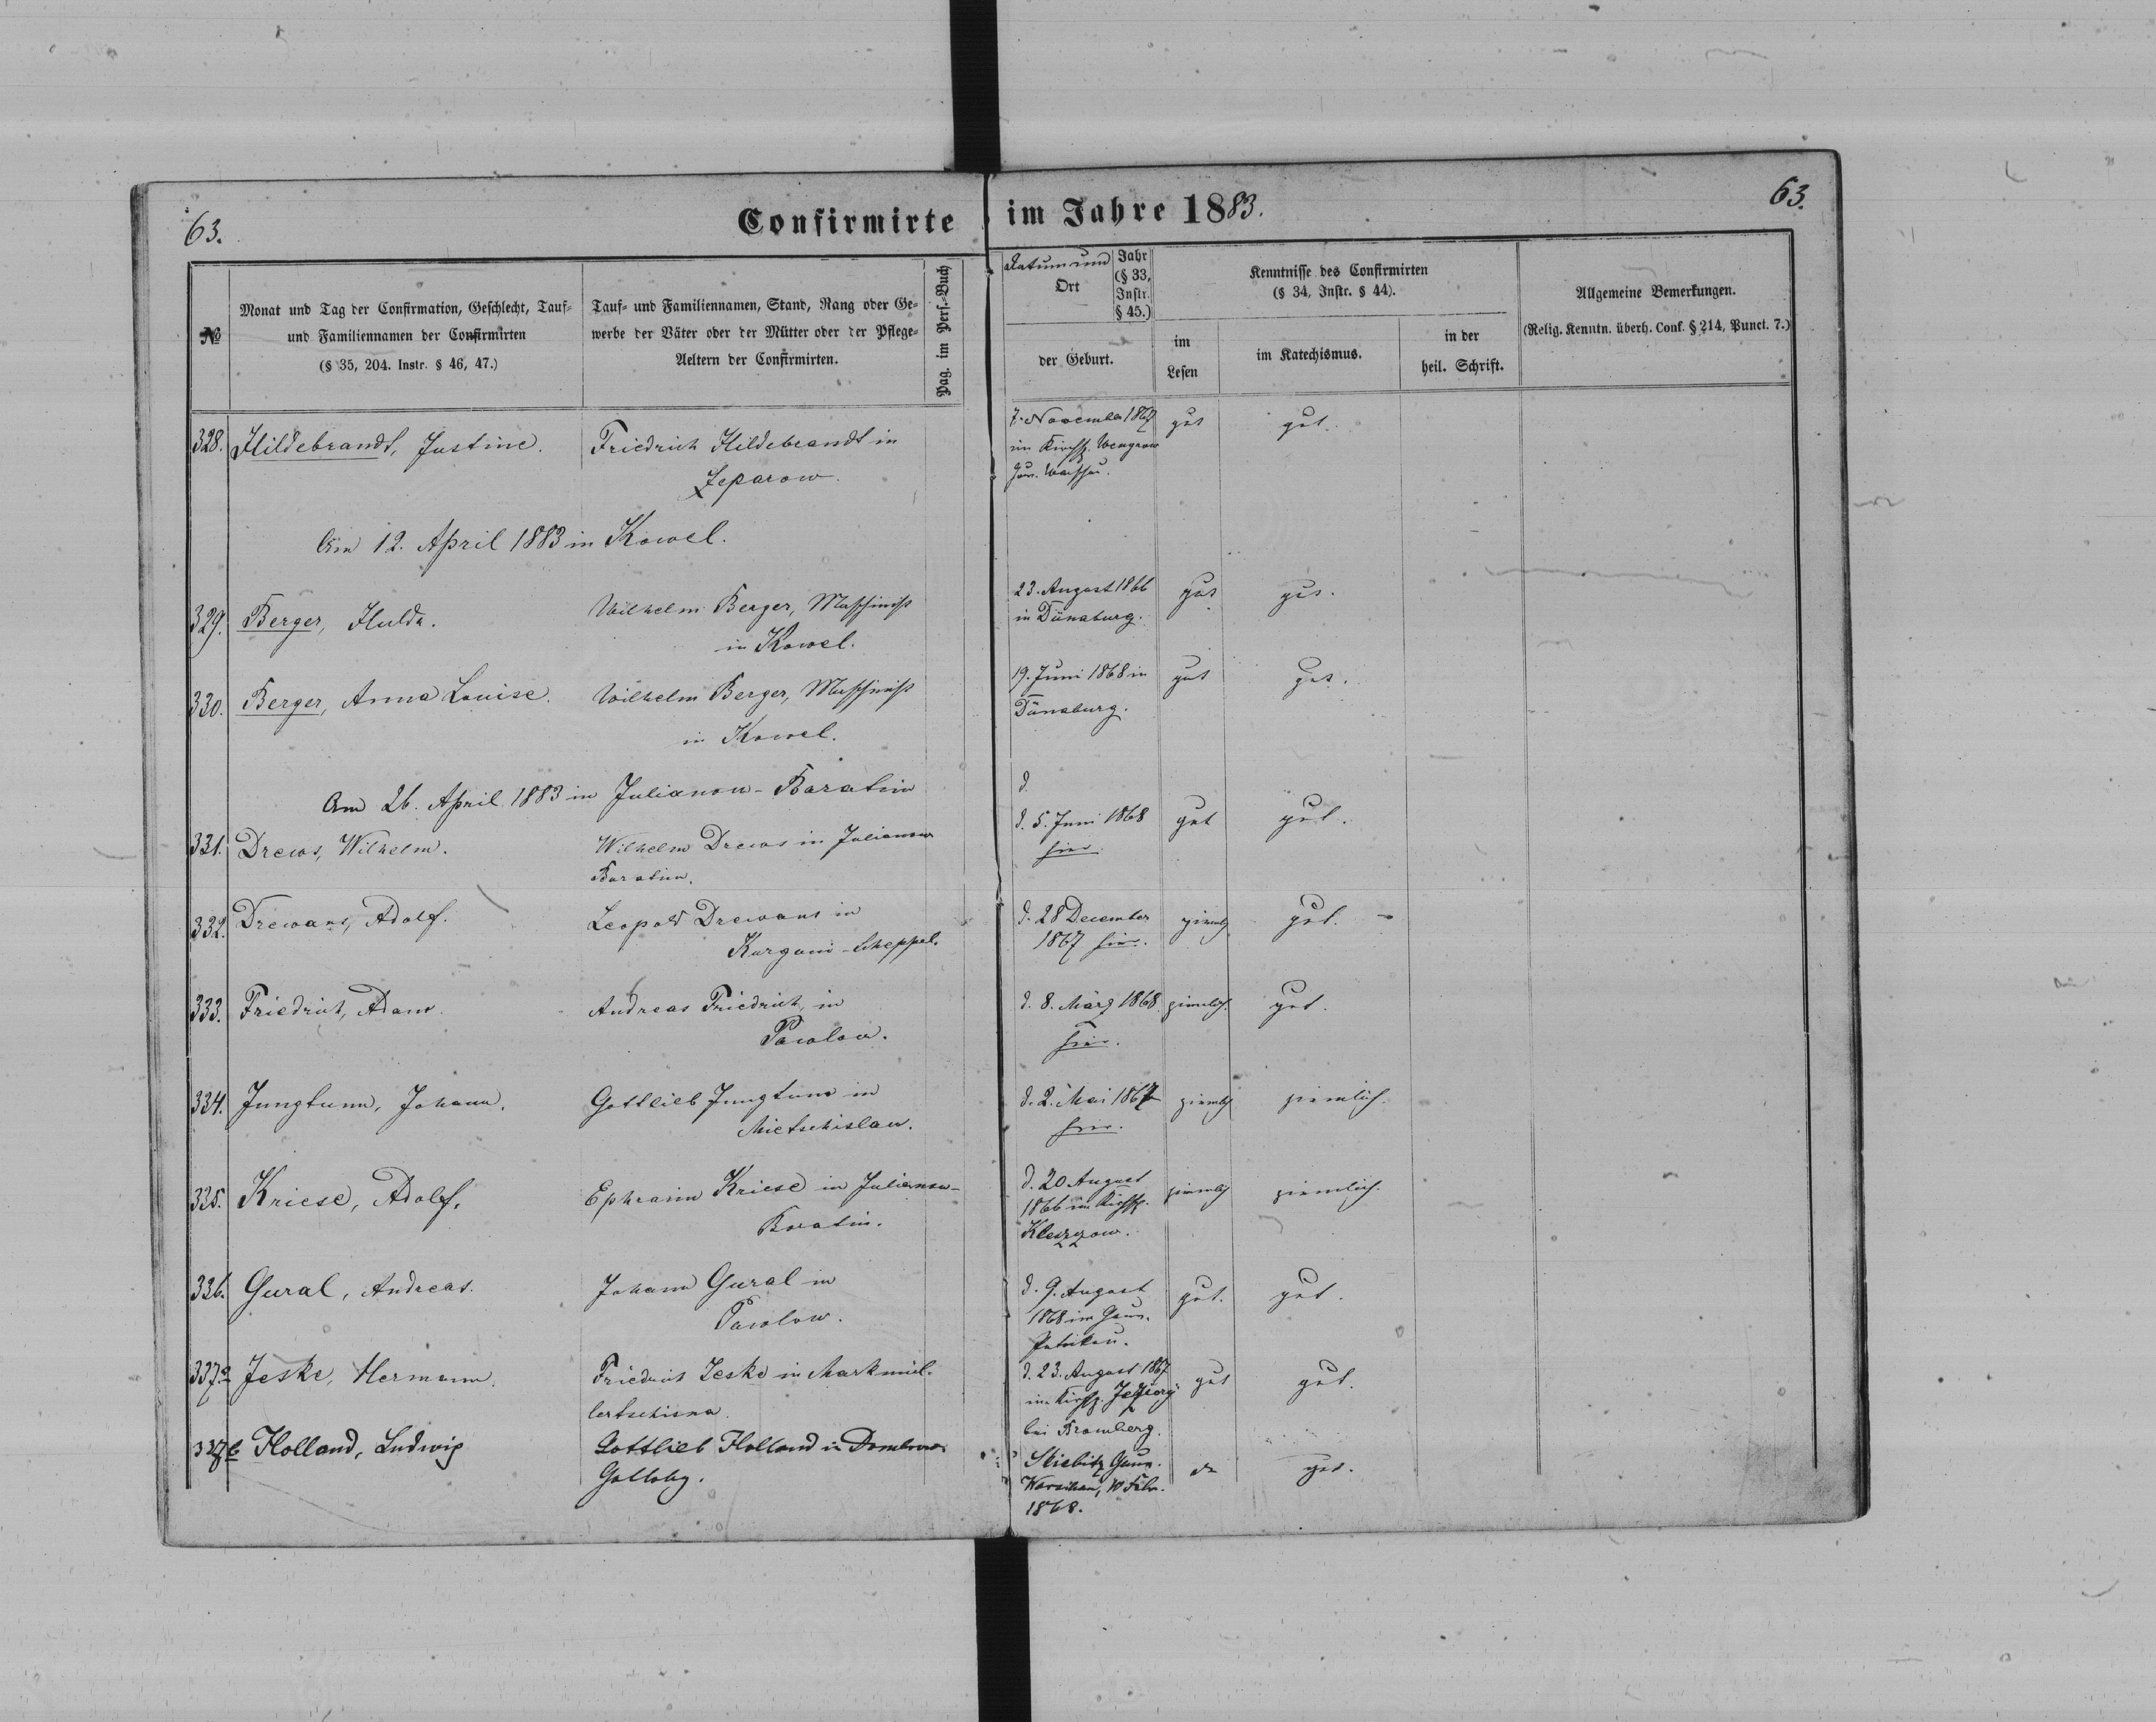 63.
Confirmirte im Jahre 1883.
63.
№
Monat und Tag der Confirmation, Geschlecht, Tauf-
und Familiennamen der Confirmirten
(§ 35, 204. Instr. § 46, 47.)
Tauf- und Familiennamen, Stand, Rang oder Ge-
werbe der Väter oder der Mütter oder der Pflege-
Aeltern der Confirmirten.
Pag. im Pers.-Buch
Datum und
Ort
Jahr
(§ 33,
Instr.
§ 45.)
der Geburt.
Kenntnisse des Confirmirten
(§ 34, Instr. § 44).
im
Lesen
im Katechismus.
in der
heil. Schrift.
Allgemeine Bemerkungen.
(Relig. Kenntn. überh. Conf. § 214, Punct. 7.)
328. Hildebrandt, Justine. Friedrich Hildebrandt in 7. November 1867 gut gut.
Zeparow. im Kirchsp. Wengrow
Gouv. Warschau.
Am 12. April 1883 in Kowel.
329. Berger, Hulda. Wilhelm Berger, Maschinist 23. August 1866 gut gut.
in Kowel. in Dünaburg.
330. Berger, Anna Louise. Wilhelm Berger, Maschinist 19. Juni 1868 in gut gut.
in Kowel. Dünaburg.
Am 26. April 1883 in Julianow-Baratin d.
331. Drews, Wilhelm. Wilhelm Drews in Julianow d. 5. Juni 1868 gut gut.
Baratin. hier.
332. Drewans, Adolf. Leopold Drewans in d. 28 December ziemlich gut.
Kurgani-Scheppel. 1867 hier.
333. Friedrich, Adam. Andreas Friedrich, in d. 8. März 1868. ziemlich. gut.
Pawlow. hier.
334. Jungtunn, Johann. Gottlieb Jungtunn in d. 2. Mai 1867 ziemlich ziemlich.
Mietschislaw. hier.
335. Kriese, Adolf. Ephraim Kriese in Julianow- d. 20 August ziemlich ziemlich.
Baratin. 1866 im Kirchsp.
336. Gural, Andreas. Johann Gural in d. 9. August gut. gut.
Pawlow. 1868 im Gouv.
Petrikau.
337a Jeske, Hermann. Friedrich Jeske in Markmil- d. 23. August 1867 gut gut.
lertschisna. im Kirchsp.
bei Bromberg.
337b Holland, Ludwig Gottlieb Holland in Dombrowa Gouv. gut.
Warschau, 10 Febr.
1868.